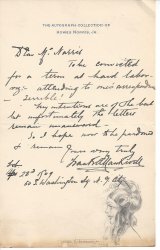 THE AUTOGRAPH COLLECTION OF
HOWES NORRIS, JR.
Dear Mr Norris
To be convicted
for a term at hard labor
attending to
terrible!
My intentions are of the best
but unfortunately the letters
remain unanswered.
So I hope now to be pardoned
& remain
Yours very truly
Apr 28th 1909
Washington Sq N. Y. City